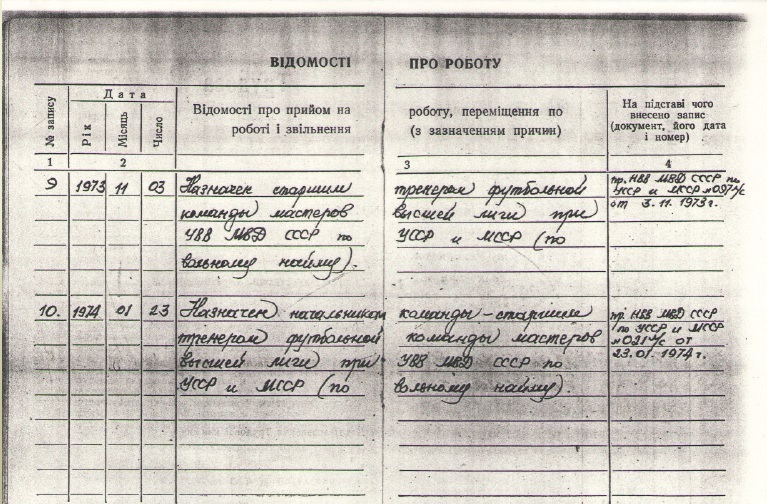 ВІДОМОСТІ ПРО РОБОТУ
№ запису
Дата
Рік
Місяць
Число
Відомості про прийом на роботу, переміщення по
роботі і звільнення (з зазначенням причин)
На підставі чого
внесено запис
(документ, його дата
і номер)
1 2 3 4
9 1973 11 03 Назначен старшим тренером футбольной
команды мастеров высшей лиги при
УВВ МВД СССР по УССР и МССР (по
вольному найму).
пр. НВВ МВД СССР по
УССР и МССР № 097 л/с
от 3.11.1973г.
10. 1974 01 23 Назначен начальником команды – старшим
тренером футбольной команды мастеров
высшей лиги при УВВ МВД СССР по
УССР и МССР (по вольному найму).
пр. НВВ МВД СССР
по УССР и МССР
№ 021 л/с от
23.01.1974г.